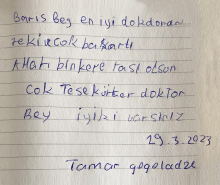 Barıs Bey en iyi dokdoran
zekivecok başarlı
Allah binkere rasi olson
Cok Teşekürker doktor
Bey iyiki varsiniz
29.3.2023
Tamar gogeladze